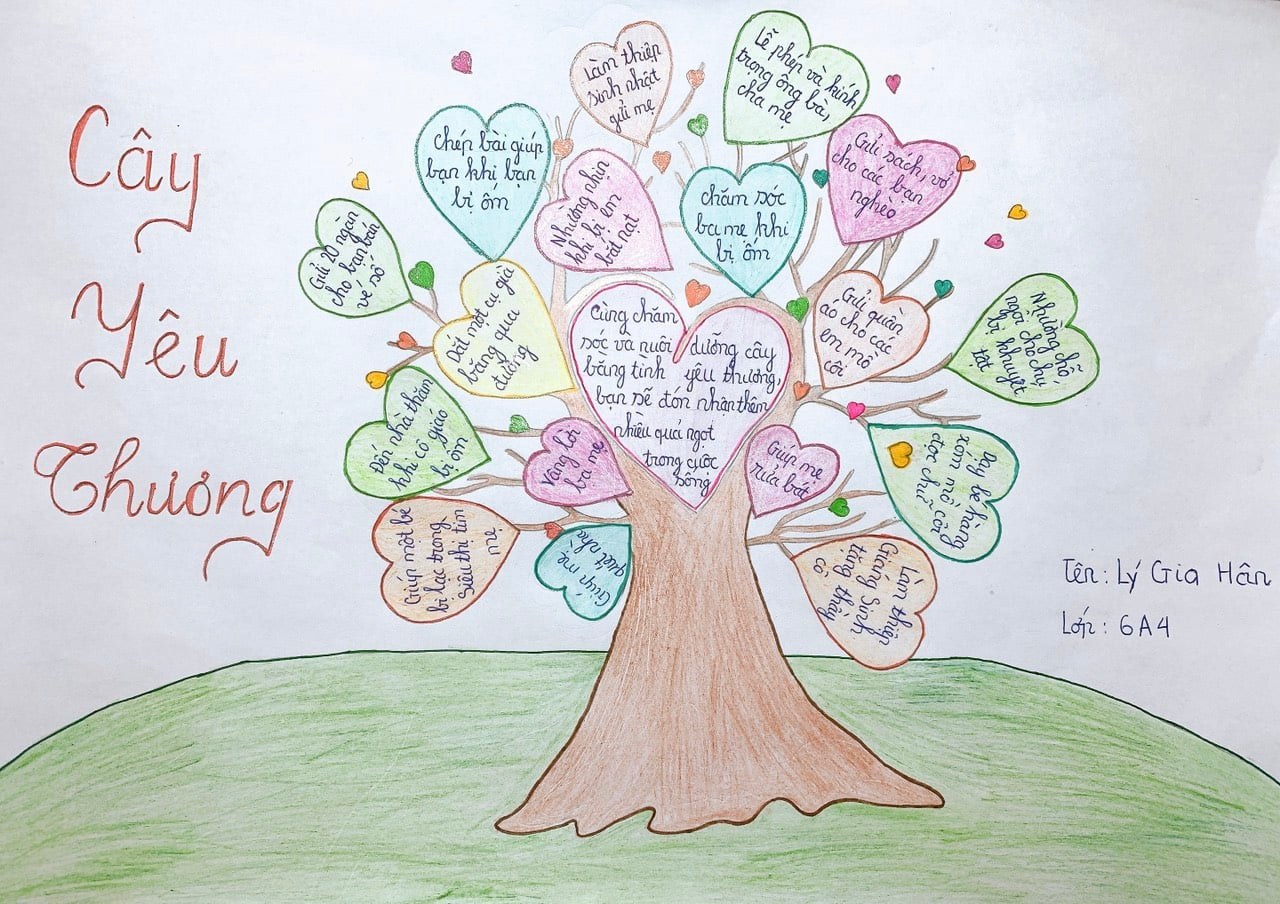 Cây
Yêu
Thương
Làm thiệp
sinh nhật
gửi mẹ
Lễ phép và kính
trọng ông bà,
cha mẹ
chép bài giúp
bạn khi bạn
bị ốm
Nhường nhịn
khi bị em
bắt nạt
chăm sóc
ba mẹ khi
bị ốm
Gửi sách, vở
cho các bạn
nghèo
Gửi 20 ngàn
cho bạn bán
vé số
Dắt một cụ già
băng qua
đường
Cùng chăm
sóc và nuôi dưỡng cây
bằng tình yêu thương,
bạn sẽ đón nhận thêm
nhiều quả ngọt
trong cuộc
sống
Gửi quần
áo cho các
em mồ
côi
Nhường chỗ
ngồi cho chú
bị khuyết
tật
Đến nhà thăm
khi cô giáo
bị ốm
Vâng lời
ba mẹ
Giúp mẹ
rửa bát
Dạy bé hàng
xóm mồ côi
đọc chữ
Giúp một bé
bị lạc trong
siêu thị tìm
mẹ
Giúp mẹ
quét nhà
Làm thiệp
Giáng Sinh
tặng thầy
cô
Tên: Lý Gia Hân
Lớp: 6A4